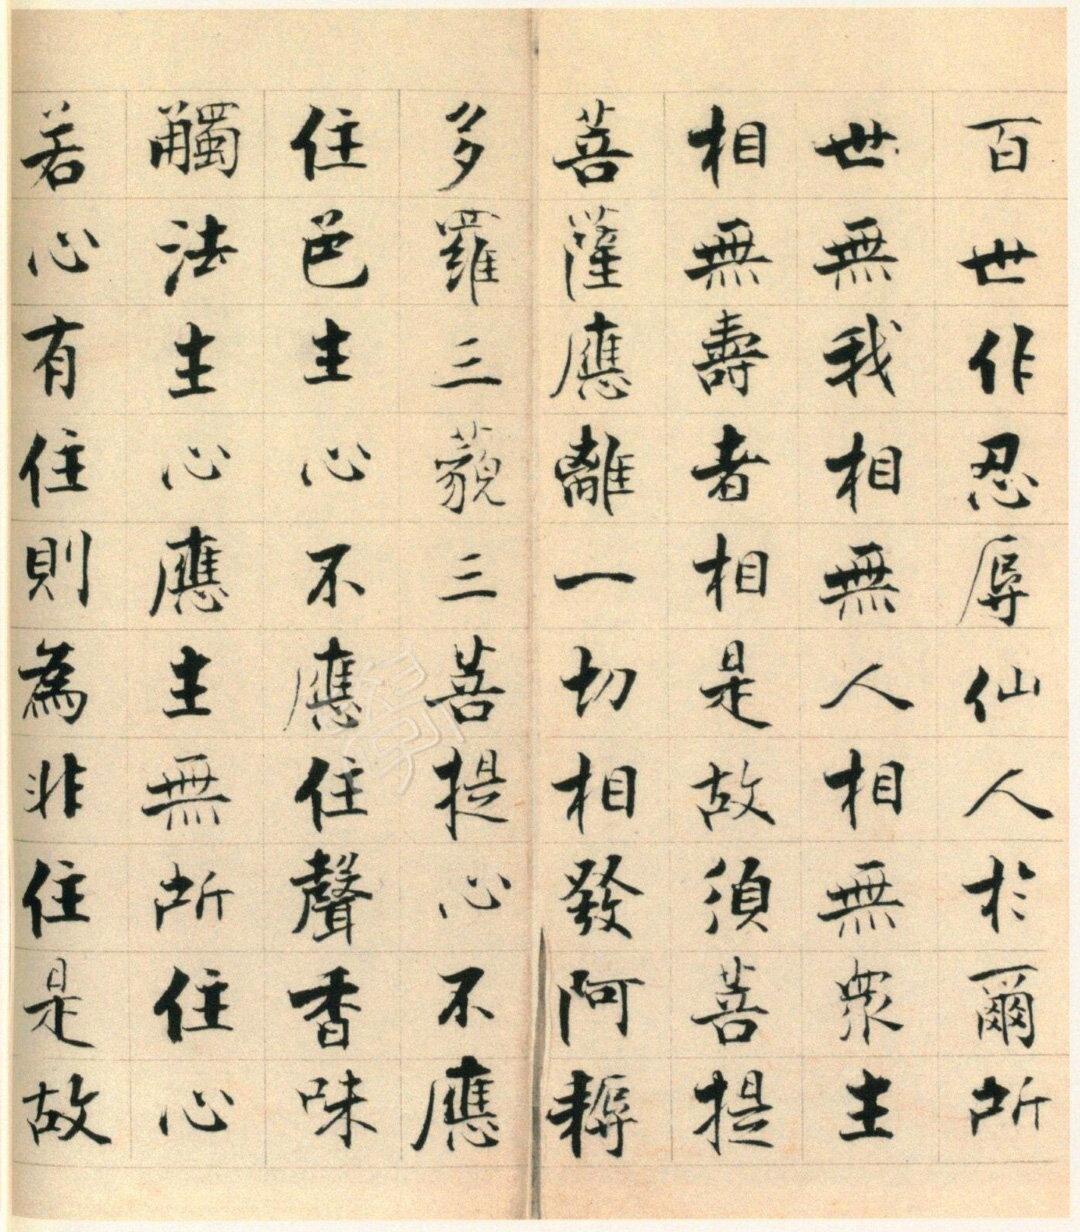 百世作忍辱仙人於爾所
世無我相無人相無眾生
相無壽者相是故須菩提
菩薩應離一切相發阿耨
多羅三藐三菩提心不應
住色生心不應住聲香味
觸法生心應生無所住心
若心有住則為非住是故